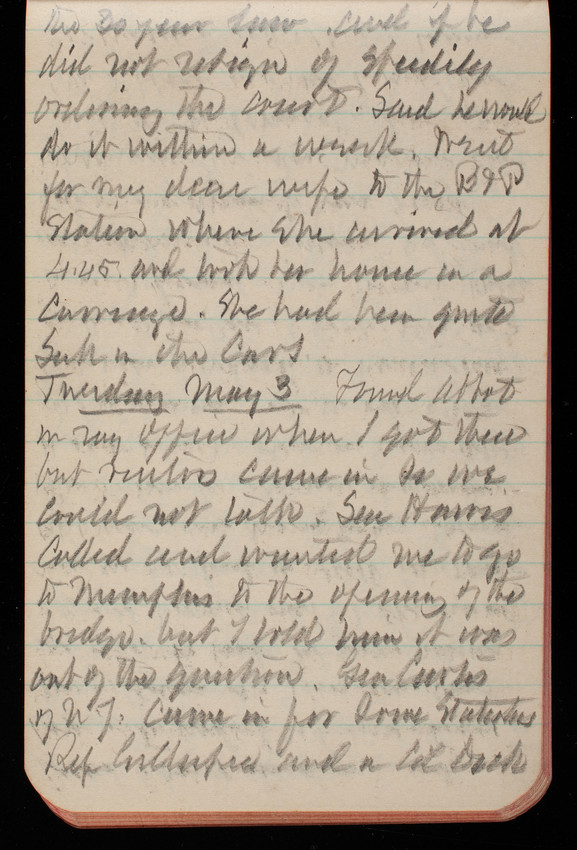 the 30 year law and if he
did not resign of speedily
ordering the court. Said he would
do it within a week. Went
for my dear wife to the B&P
Station where she arrived at
4.45. and took her home in a
Carriage. She had been quite
Sick in the Cars.
Tuesday May 3 Found Abbot
in my office when I got there
but visitors came in so we
could not talk. Sen Harris
Called and wanted me to go
to Memphis to the opening of the
bridge. but I told him it was
out of the question. Gen Curtis
of N.Y. came in for some Statistics
Rep and a Col